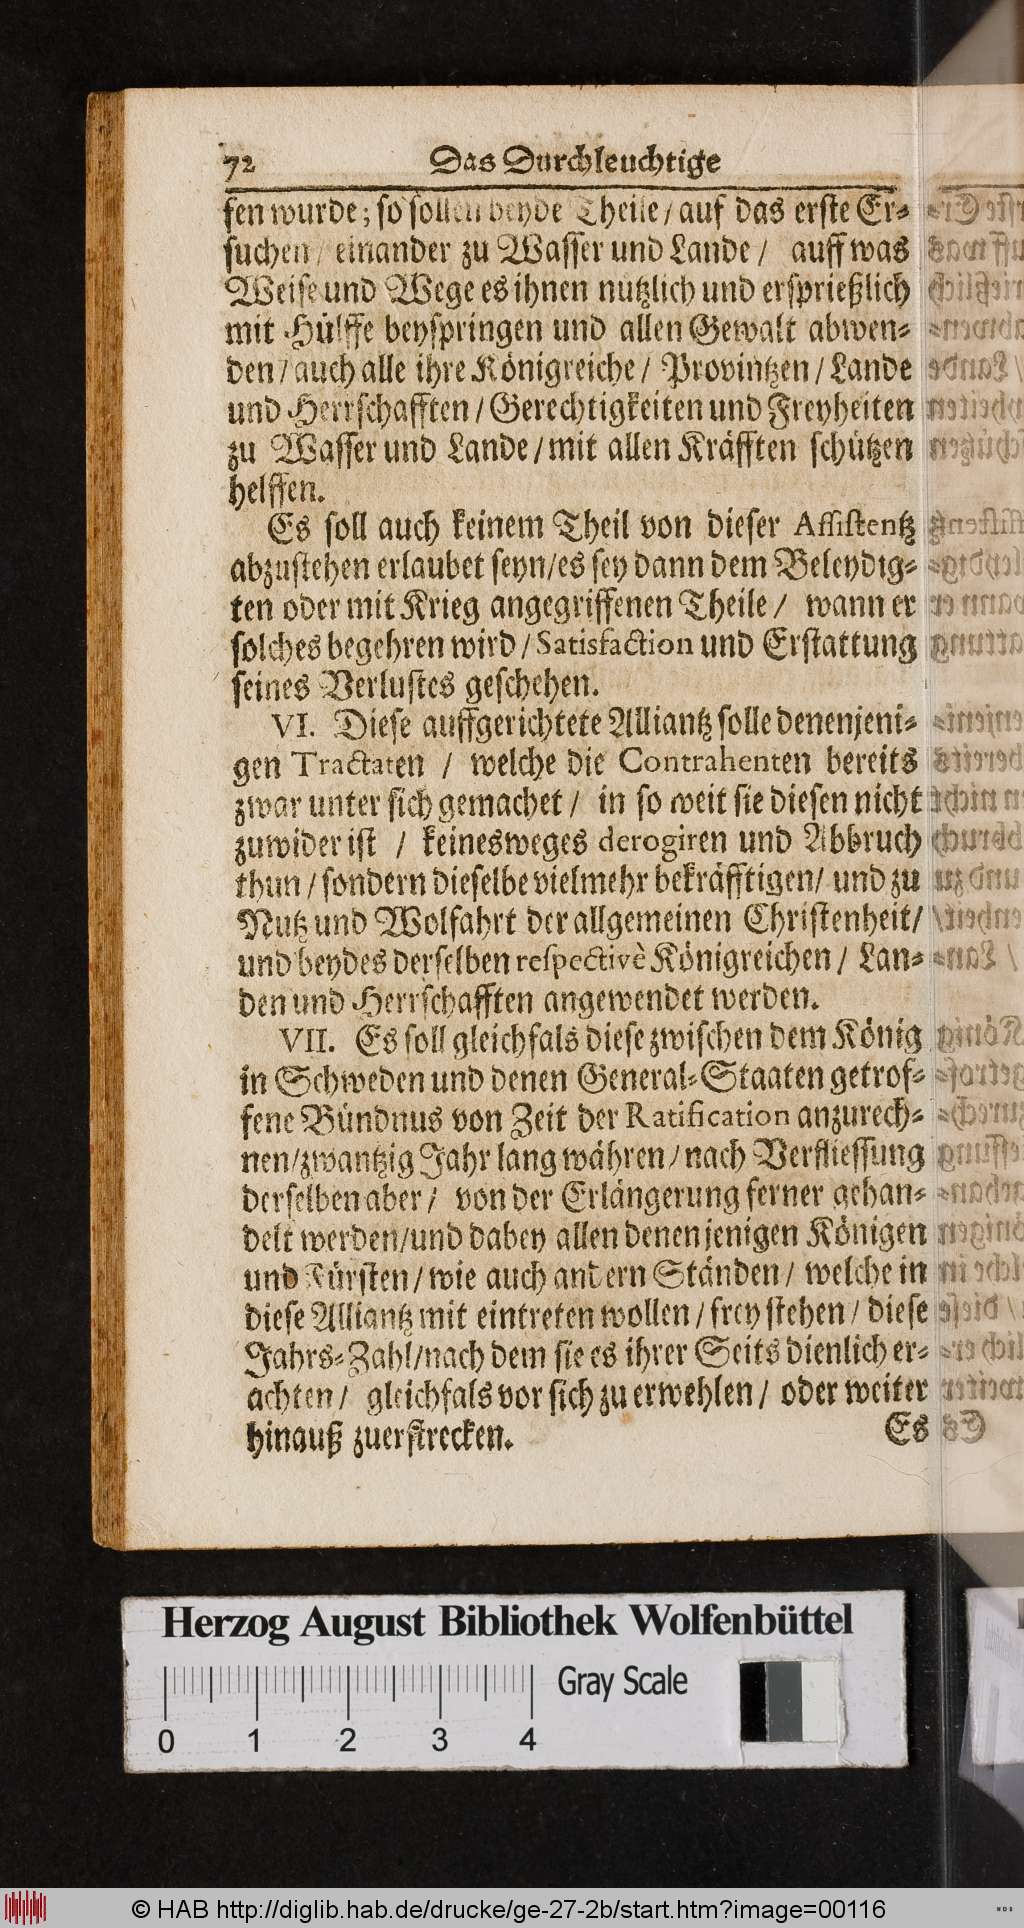 72 Das Durchleuchtige
fen wurde; so sollen beyde Theile / auf das erste Er-
suchen / einander zu Wasser und Lande / auff was
Weise und Wege es ihnen nutzlich und ersprießlich
mit Hülffe beyspringen und allen Gewalt abwen-
den / auch alle ihre Königreiche / Provintzen / Lande
und Herrschafften / Gerechtigkeiten und Freyheiten
zu Wasser und Lande / mit allen Kräfften schützen
helffen.
Es soll auch keinem Theil von dieser Assistentz
abzustehen erlaubet seyn / es sey dann dem Beleydig-
ten oder mit Krieg angegriffenen Theile / wann er
solches begehren wird / Satisfaction und Erstattung
seines Verlustes geschehen.
VI. Diese auffgerichtete Alliantz solle denenjeni-
gen Tractaten / welche die Contrahenten bereits
zwar unter sich gemachet / in so weit sie diesen nicht
zuwider ist / keinesweges derogiren und Abbruch
thun / sondern dieselbe vielmehr bekräfftigen / und zu
Nutz und Wolfahrt der allgemeinen Christenheit /
und beydes derselben respectivè Königreichen / Lan-
den und Herrschafften angewendet werden.
VII. Es soll gleichfals diese zwischen dem König
in Schweden und denen General-Staaten getrof-
fene Bündnus von Zeit der Ratification anzurech-
nen / zwantzig Jahr lang währen / nach Verfliessung
derselben aber / von der Erlängerung ferner gehan-
delt werden / und dabey allen denenjenigen Königen
und Fürsten / wie auch andern Ständen / welche in
diese Alliantz mit eintreten wollen / frey stehen / diese
Jahrs-Zahl / nach dem sie es ihrer Seits dienlich er-
achten / gleichfals vor sich zu erwehlen / oder weiter
hinauß zuerstrecken.
Es
Herzog August Bibliothek Wolfenbüttel
Gray Scale
0 1 2 3 4
© HAB http://diglib.hab.de/drucke/ge-27-2b/start.htm?image=00116